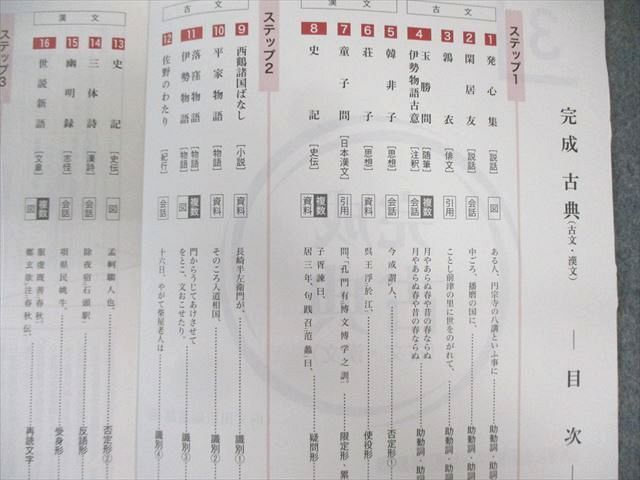 完成 古典(古文・漢文) ― 目 次 ―
ステップ1
古文
1 発心集 [説話] 図 ある人、円宗寺の八講といふ事に 助動詞・助詞
2 閑居友 [説話] 会話 中ごろ、播磨の国に、 助動詞・助詞
3 鶉衣 [俳文] 引用 ことし前津の里に世をのがれて、 助動詞・助詞
4 玉勝間 [随筆] 複数 月やあらぬ春や昔の春ならぬ 助動詞・助詞
伊勢物語古意 [注釈] 会話 月やあらぬ春や昔の春ならぬ
漢文
5 韓非子 [思想] 会話 今或謂人、 否定形①
6 荘子 [思想] 資料 呉王浮於江、 使役形
7 童子問 [日本漢文] 引用 問、「孔門有博文博学之訓、 限定形・累
8 史記 [史伝] 複数 資料 子胥諫曰、
居三年、句践召范蠡曰、 疑問形
ステップ2
古文
9 西鶴諸国ばなし [小説] 資料 長崎半左衛門が、 識別①
10 平家物語 [物語] 資料 そのころ入道相国、 識別②
11 落窪物語 [物語] 複数 門からうじてあけさせて
伊勢物語 [物語] 図 をとこ、文おこせたり。 識別③
12 佐野のわたり [紀行] 会話 十六日、やがて柴屋老人は 識別④
漢文
13 史記 [史伝] 図 孟軻騶人也。 否定形②
14 三体詩 [漢詩] 会話 除夜宿石頭駅 反語形
15 幽明録 [志怪] 会話 項県民姚牛、 受身形
16 世説新語 [文章] 複数 図 服虔既善春秋、
鄭玄欲注春秋伝、 再読文字
ステップ3